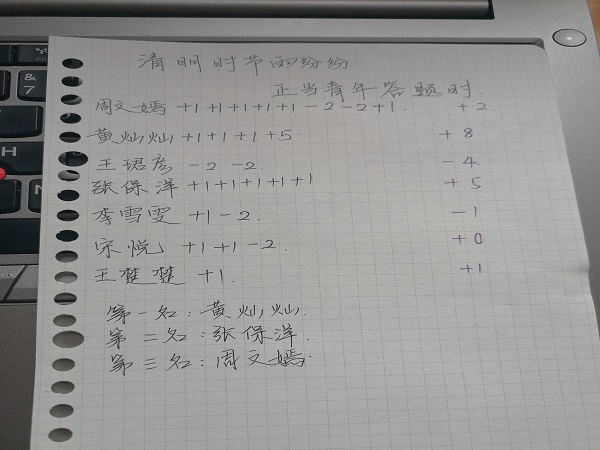 清明时节雨纷纷
正当青年答题时.
周文嫣 +1+1+1+1+1-2-2+1. +2.
黄灿灿 +1+1+1+5 +8
王珺彦 -2 -2. -4.
张保洋 +1+1+1+1+1 +5
李雪雯 +1-2. -1
宋悦 +1+1-2. +0
王楚楚 +1. +1
第一名:黄灿灿.
第二名:张保洋.
第三名:周文嫣.
&
7
Y
H
N